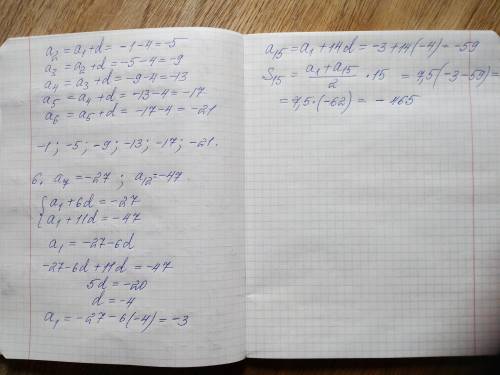 a₂ = a₁+d = -1-4=-5
a₃ = a₂+d = -5-4=-9
a₄ = a₃+d = -9-4=-13
a₅ = a₄+d = -13-4=-17
a₆ = a₅+d = -17-4=-21
-1; -5; -9; -13; -17; -21.
6. a₇=-27; a₁₂=-47.
{a₁+6d=-27
{a₁+11d=-47
a₁ = -27-6d
-27-6d+11d=-47
5d=-20
d=-4
a₁=-27-6(-4)=-3
a₁₅=a₁+14d=-3+14(-4)=-59
S₁₅ = (a₁+a₁₅)/2 · 15 = 7,5(-3-59)=
= 7,5·(-62) = -465